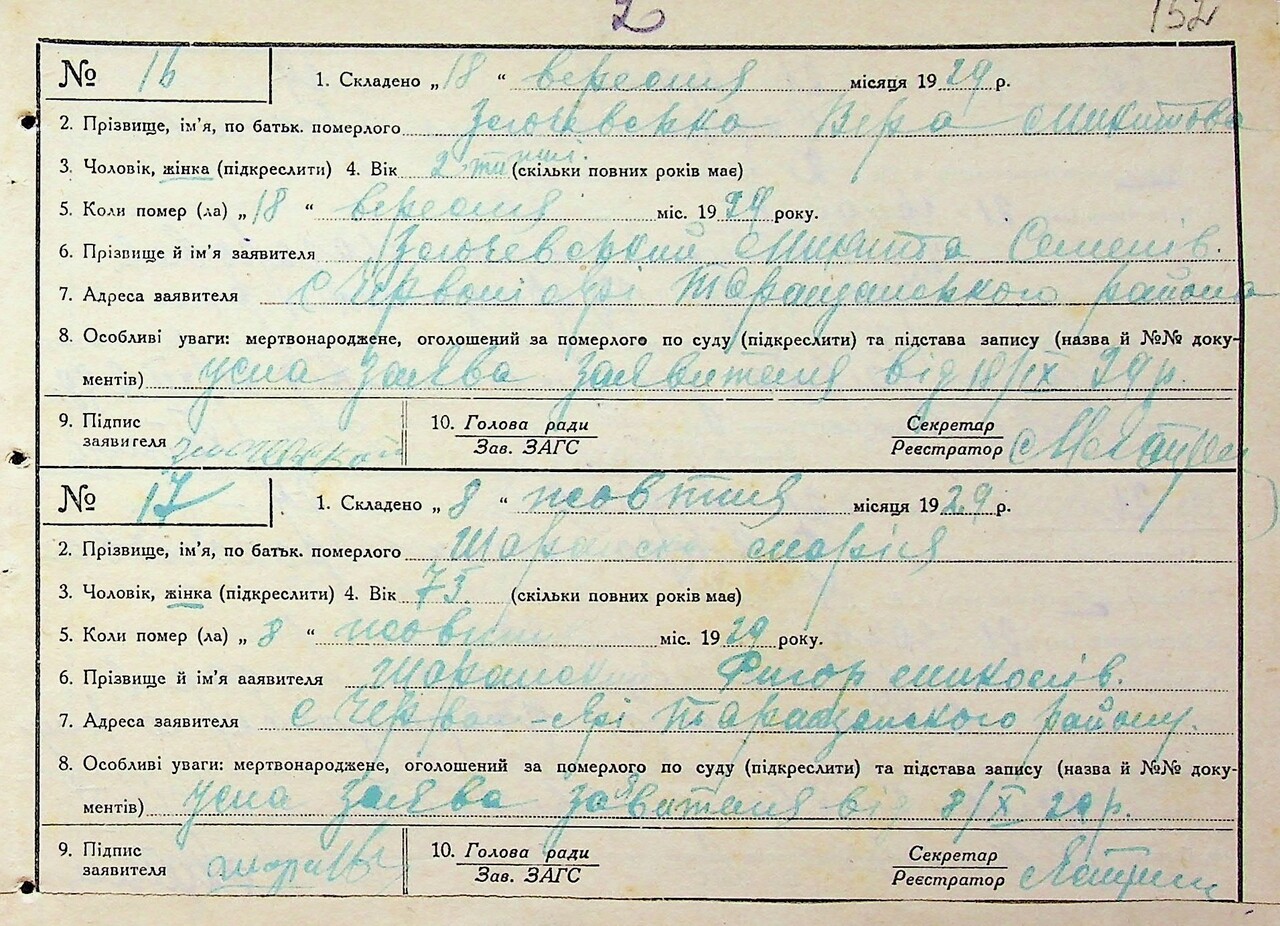 2 152
№ 16 1. Складено „ 18 “ вересня місяця 1929 р.
2. Прізвище, ім’я, по батьк. померлого Вера Микитова
3. Чоловік, жінка (підкреслити) 4. Вік 2 (скільки повних років має)
5. Коли помер (ла) „ 18 “ вересня міс. 1929 року.
6. Прізвище й ім’я заявителя Микита Семенів.
7. Адреса заявителя с Таращанського района
8. Особливі уваги: мертвонароджене, оголошений за померлого по суду (підкреслити) та підстава запису (назва й №№ доку-
ментів) усна заява заявителя від 18/IX 29 р.
9. Підпис 10. Голова ради Секретар
заявителя Зав. ЗАГС Реєстратор
№ 17 1. Складено „ 8 “ жовтня місяця 1929 р.
2. Прізвище, ім’я, по батьк. померлого Марія
3. Чоловік, жінка (підкреслити) 4. Вік 75 (скільки повних років має)
5. Коли помер (ла) „ 8 “ жовтня міс. 1929 року.
6. Прізвище й ім’я заявителя
7. Адреса заявителя с Таращанського району.
8. Особливі уваги: мертвонароджене, оголошений за померлого по суду (підкреслити) та підстава запису (назва й №№ доку-
ментів) усна заява заявителя від 8/X 29 р.
9. Підпис 10. Голова ради Секретар
заявителя Зав. ЗАГС Реєстратор